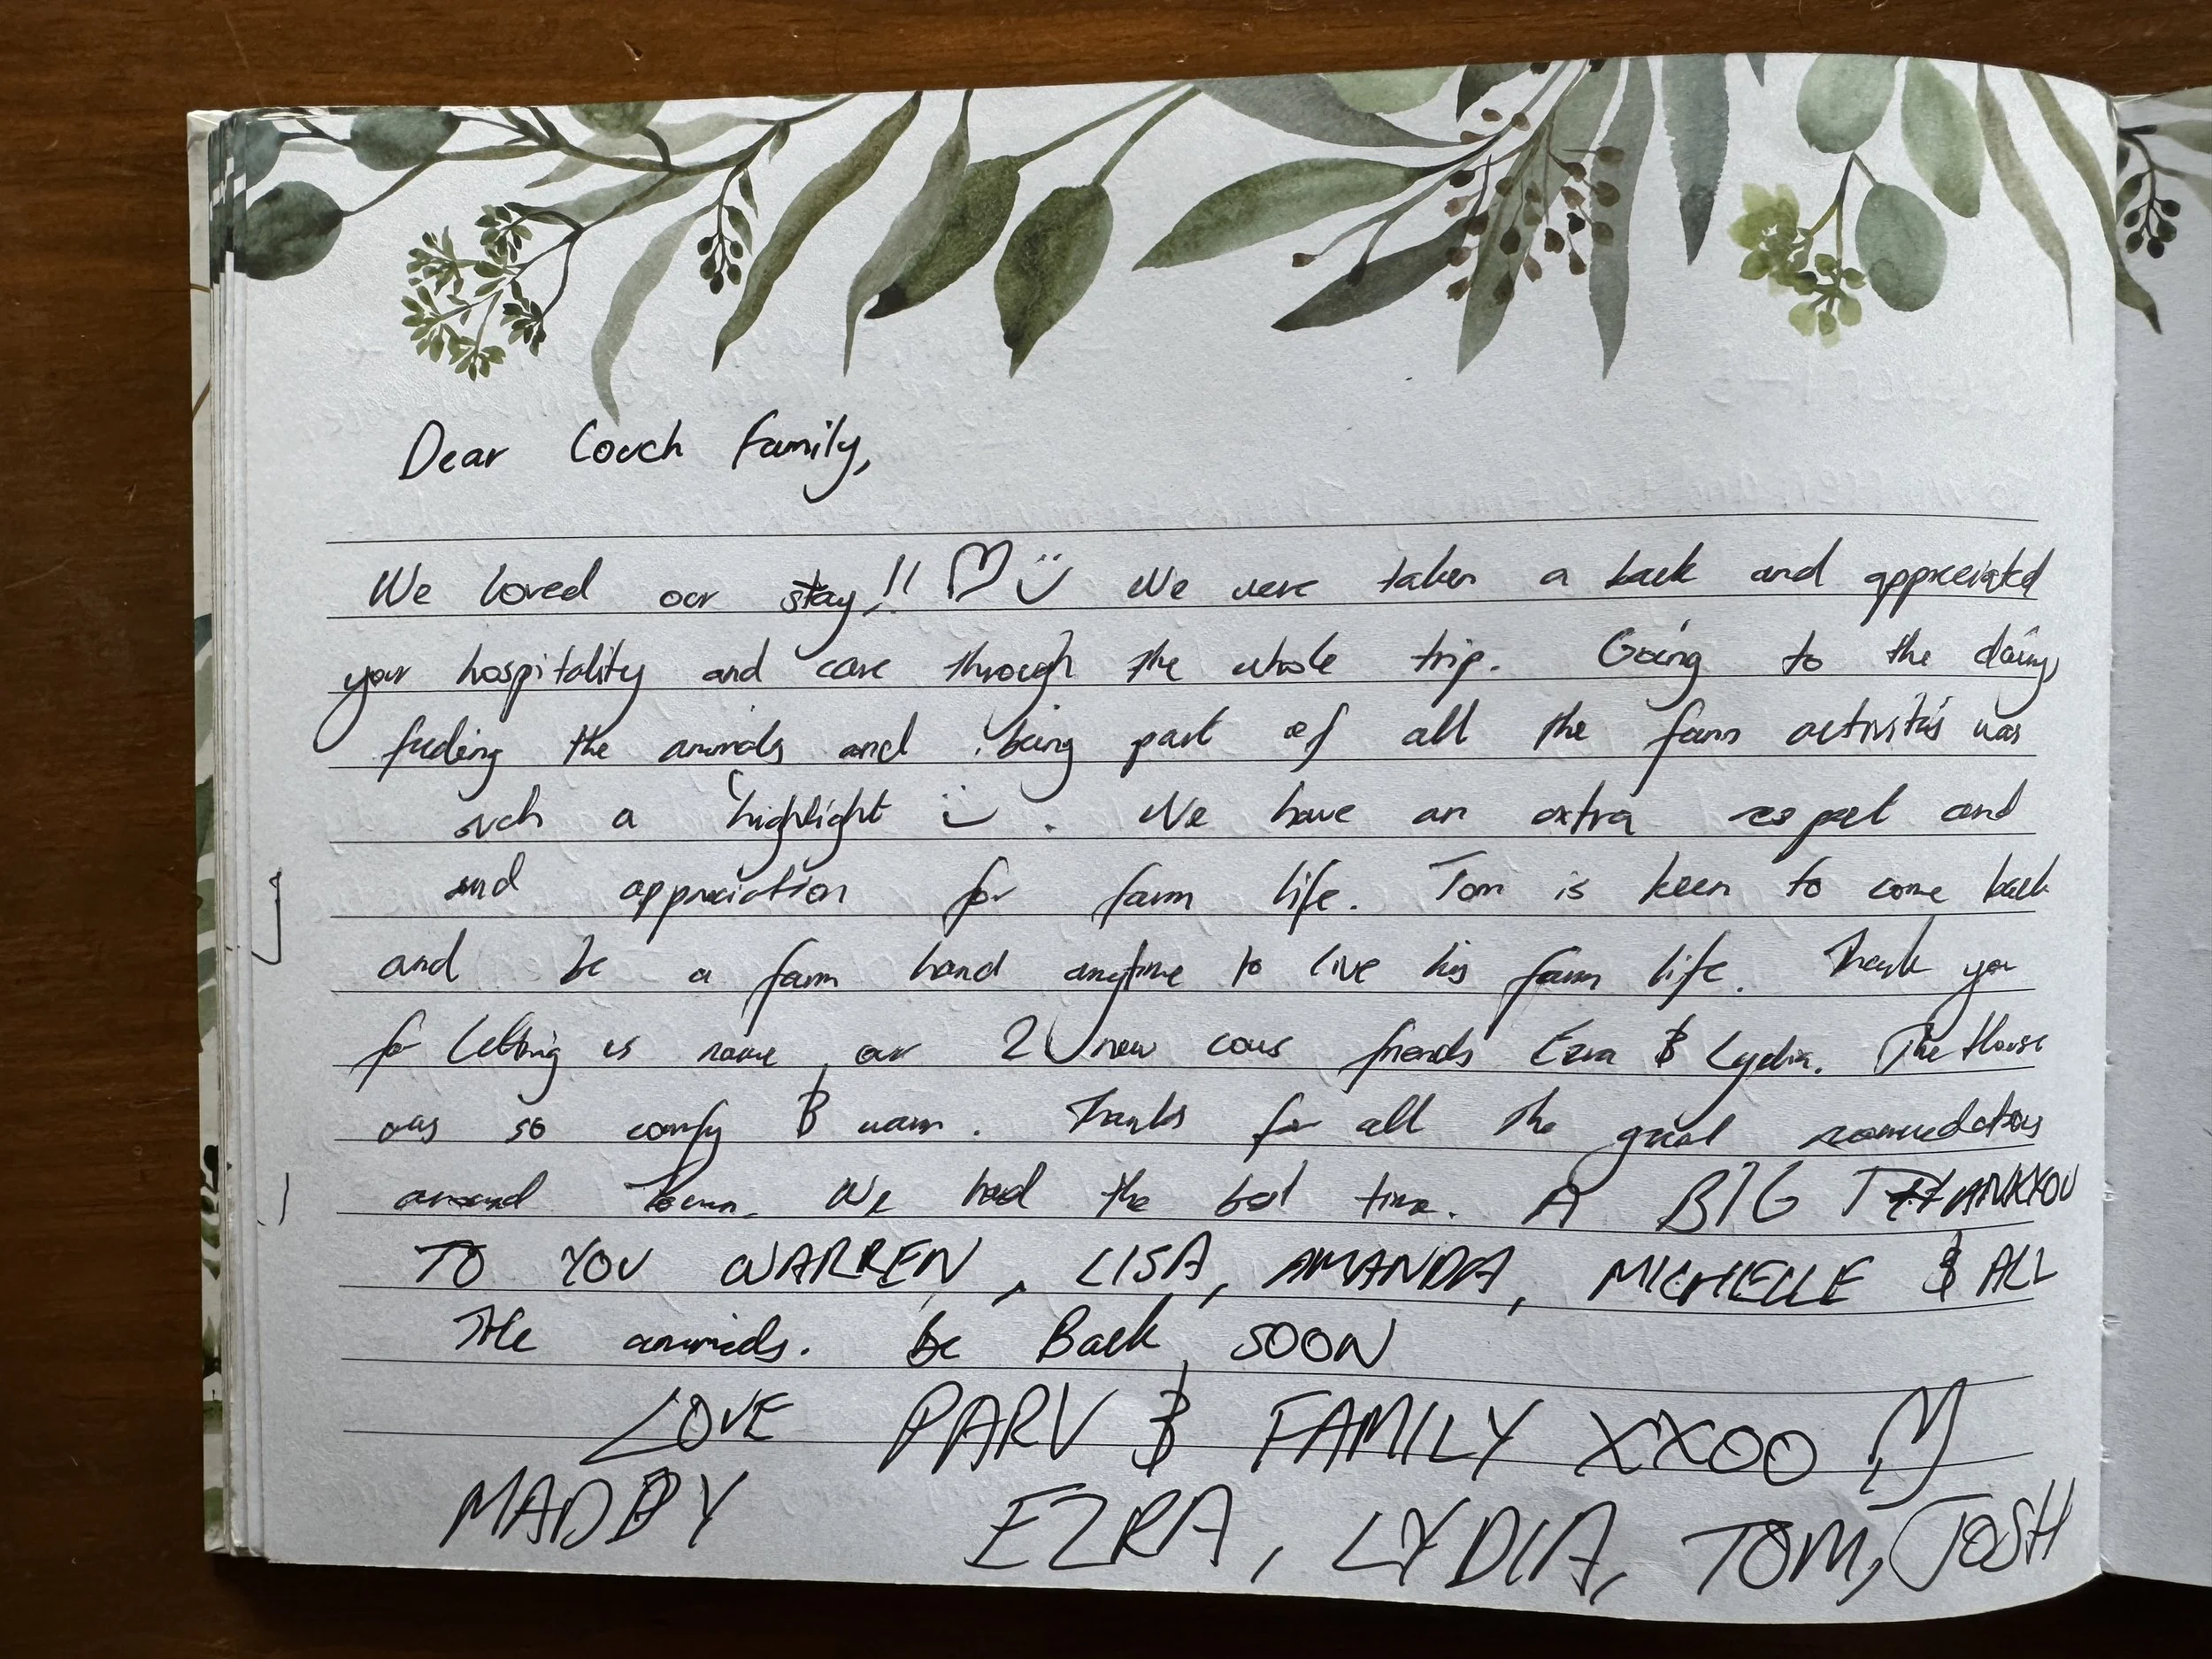 Dear Couch Family,
We loved our stay!! ♡ :) We were taken a back and appreciated
your hospitality and care through the whole trip. Going to the dairy,
feeding the animals and being part of all the farm activities was
such a highlight :) . We have an extra respect and
and appreciation for farm life. Tom is keen to come back
and be a farm hand anytime to live his farm life. Thank you
for letting us name our 2 new cows friends Ezra & Lydia. The House
was so comfy & warm. Thanks for all the great
around town. We had the best time. A BIG THANKYOU
TO YOU WARREN, LISA, AMANDA, MICHELLE & ALL
THE animals. be Back SOON
LOVE PARV & FAMILY XXOO ♡
MADDY EZRA, LYDIA, TOM, JOSH